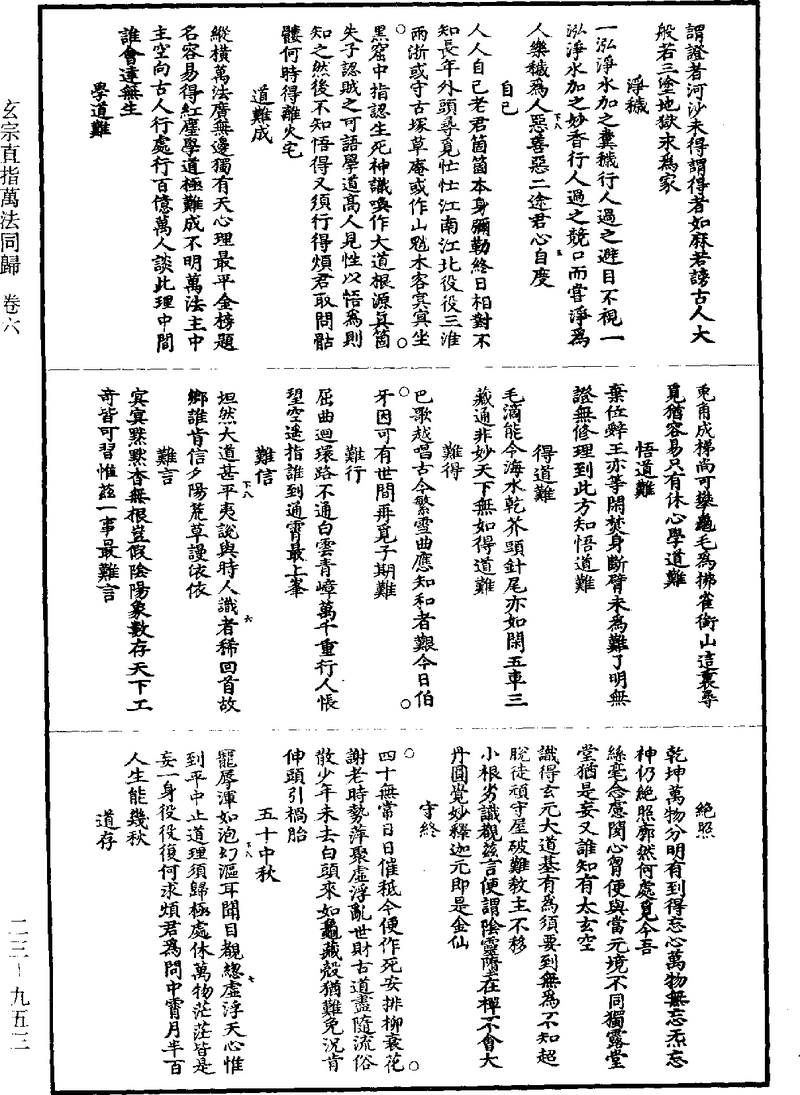 謂證者河沙未得謂得者如麻若謗古人大
般若三塗地獄求為家
淨穢
一泓淨水加之糞穢行人過之避目不視一
泓淨水加之妙香行人過之競口而嘗淨為
人樂穢為人惡善惡二途君心自度
自己
人人自己老君箇箇本身彌勒終日相對不
知長年外頭尋覓忙忙江南江北役役三淮
兩浙或守古塚草庵或作山魈木客寞寞坐
黑窟中指認生死神識喚作大道根源真箇
失子認賊之可語學道高人見性以悟為則
知之然後不知悟得又須行得煩君取問骷
髏何時得離火宅
道難成
縱橫萬法廣無邊獨有天心理最平金榜題
名容易得紅塵學道極難成不明萬法主中
主空向古人行處行百億萬人談此理中間
誰會達無生
學道難
兎角成梯尚可攀龜毛為拂雀銜山這裏尋
覓猶容易只有休心學道難
悟道難
棄位辭王亦等閑焚身斷臂未為難了明無
證無修理到此方知悟道難
得道難
毛滴能令海水乾芥頭針尾亦如閑五車三
藏通非妙天下無如得道難
難得
巴歌越唱古今繁雪曲應知和者艱今日伯
牙因可有世間再覓子期難
難行
屈曲迴環路不通白雲青嶂萬千重行人悵
望空遥指誰到通霄最上峯
難信
坦然大道甚平夷說與時人識者稀回首故
鄉誰肯信夕陽荒草謾依依
難言
寞寞默默杳無根豈假陰陽象數存天下工
奇皆可習惟茲一事最難言
絕照
乾坤萬物分明有到得忘心萬物無忘炁忘
神仍絕照廓然何處覓今吾
絲毫念慮関心胷便與當元境不同獨露堂
堂猶是妄又誰知有太玄空
識得玄元大道基有為須要到無為不知超
脫徒頑守屋破難教主不移
小根劣識觀茲言便謂陰靈墮在禪不會大
丹圓覺妙釋迦元即是金仙
守終
四十無常日日催秪今便作死安排柳衰花
謝老時勢萍聚虛浮亂世財古道盡隨流俗
散少年未去白頭來如龜藏殼猶難免況肯
伸頭引禍胎
五十中秋
寵辱渾如泡幻漚耳聞目覩緫虛浮天心惟
到平中止道理須歸極處休萬物茫茫皆是
妄一身役役復何求煩君為問中霄月半百
人生能幾秋
道存
玄宗直指萬法同歸 卷六
二三－九五三